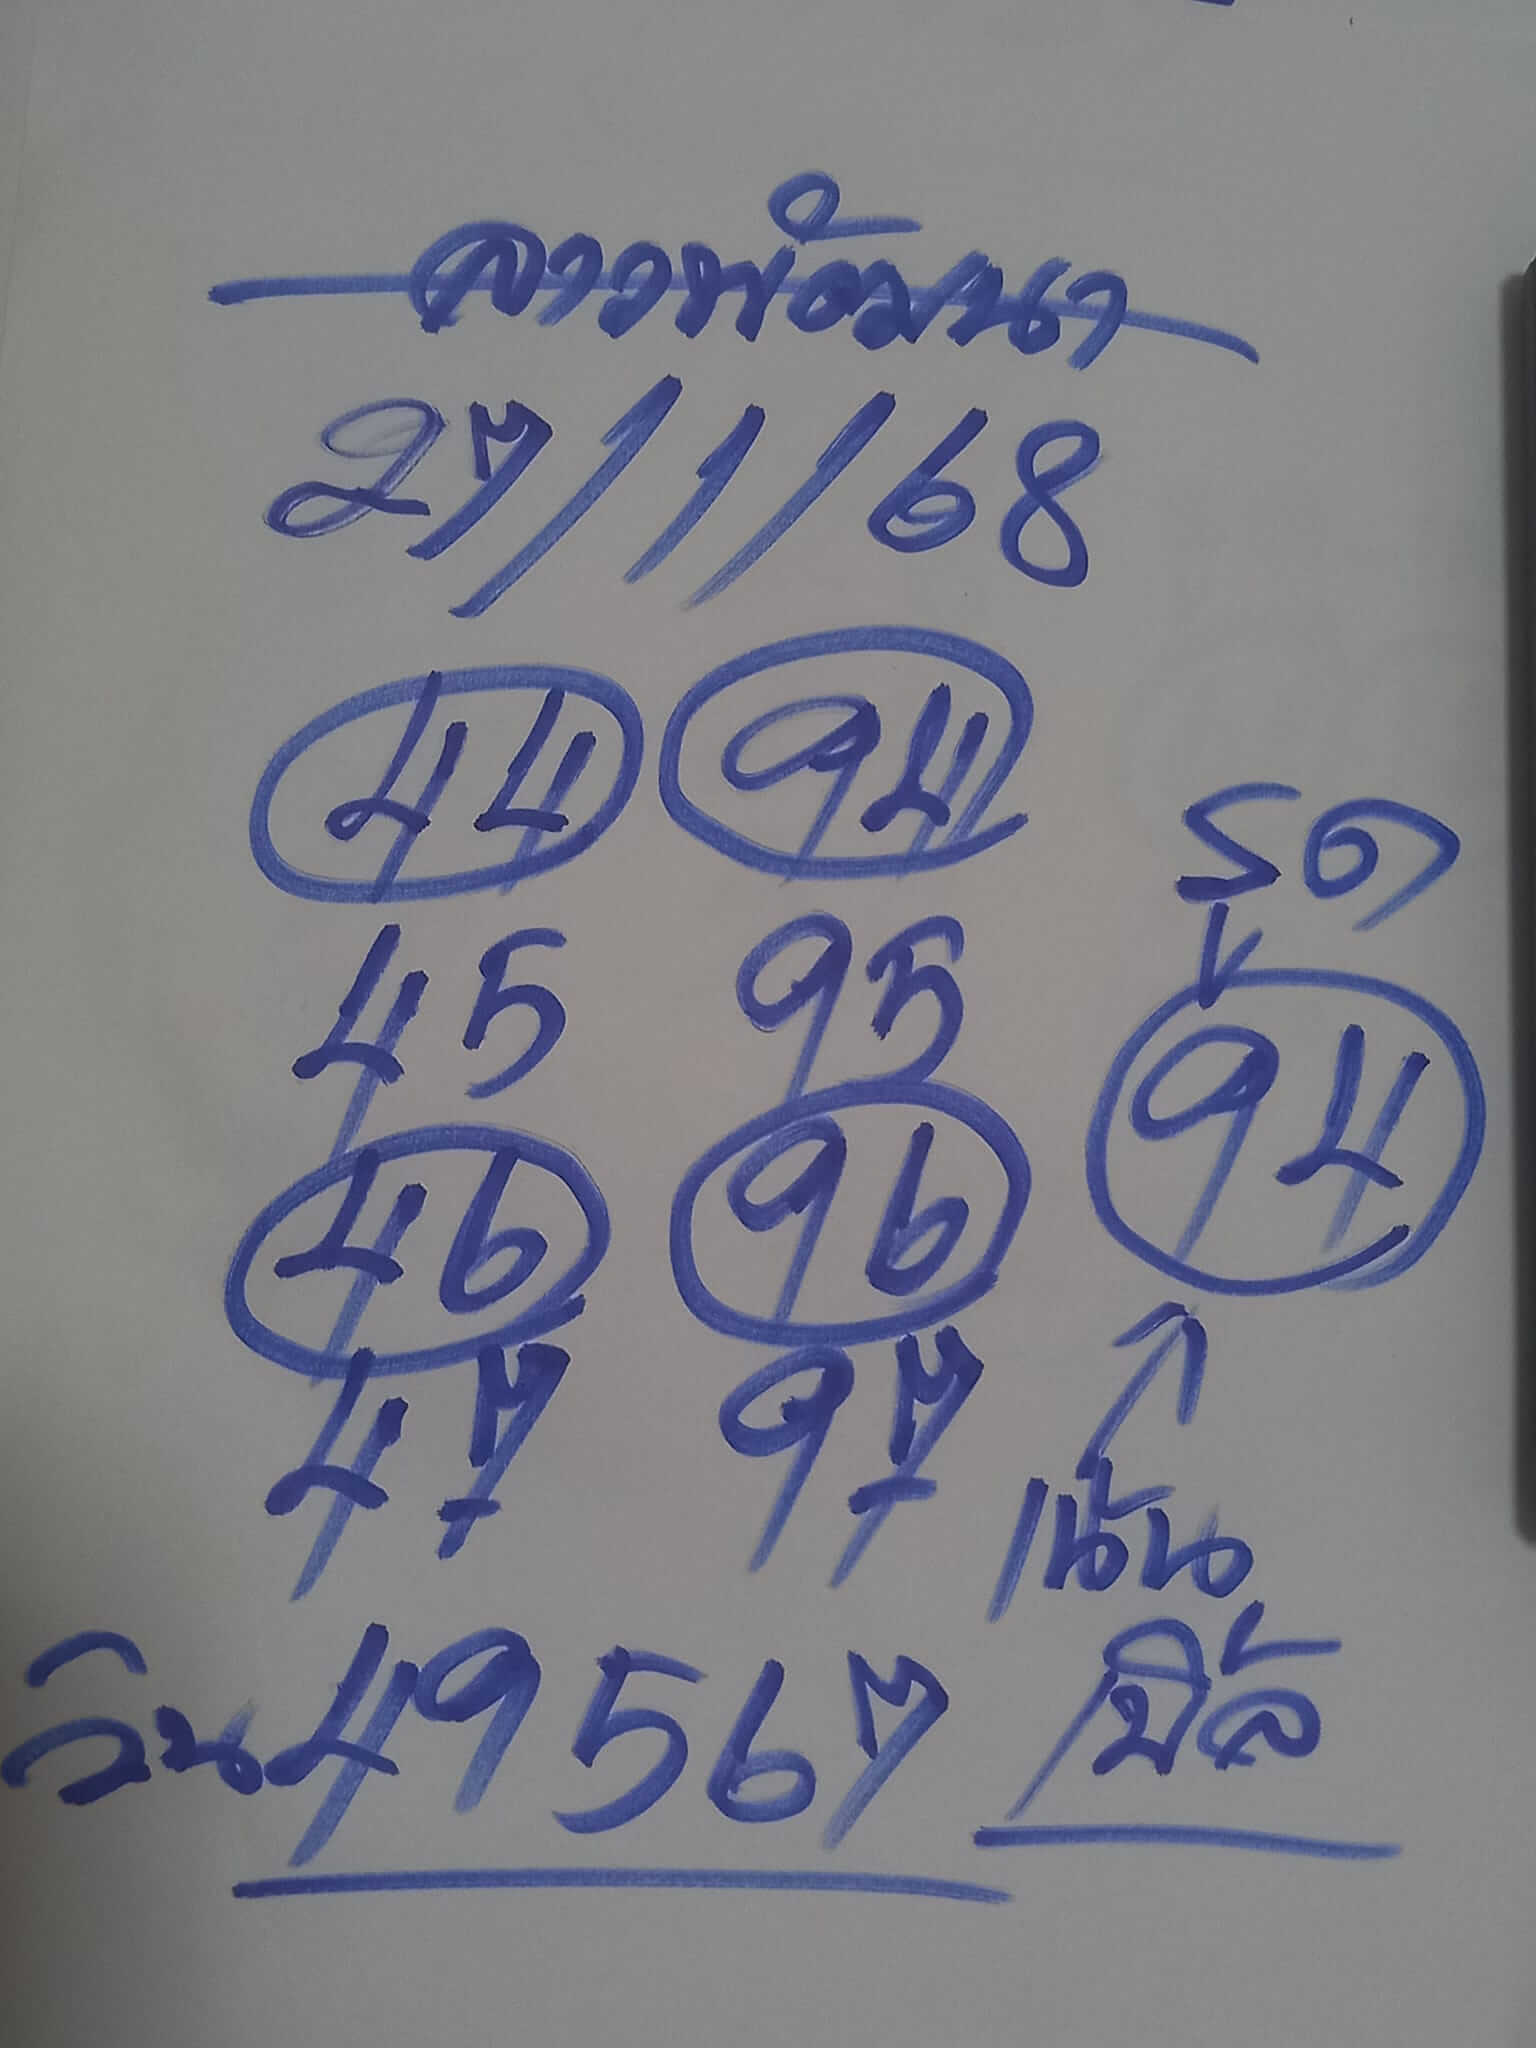 ลาวพัฒนา
27/1/68
44 94
รูด
45 95
94
46 96
47 97
เน้น
วิน 49567